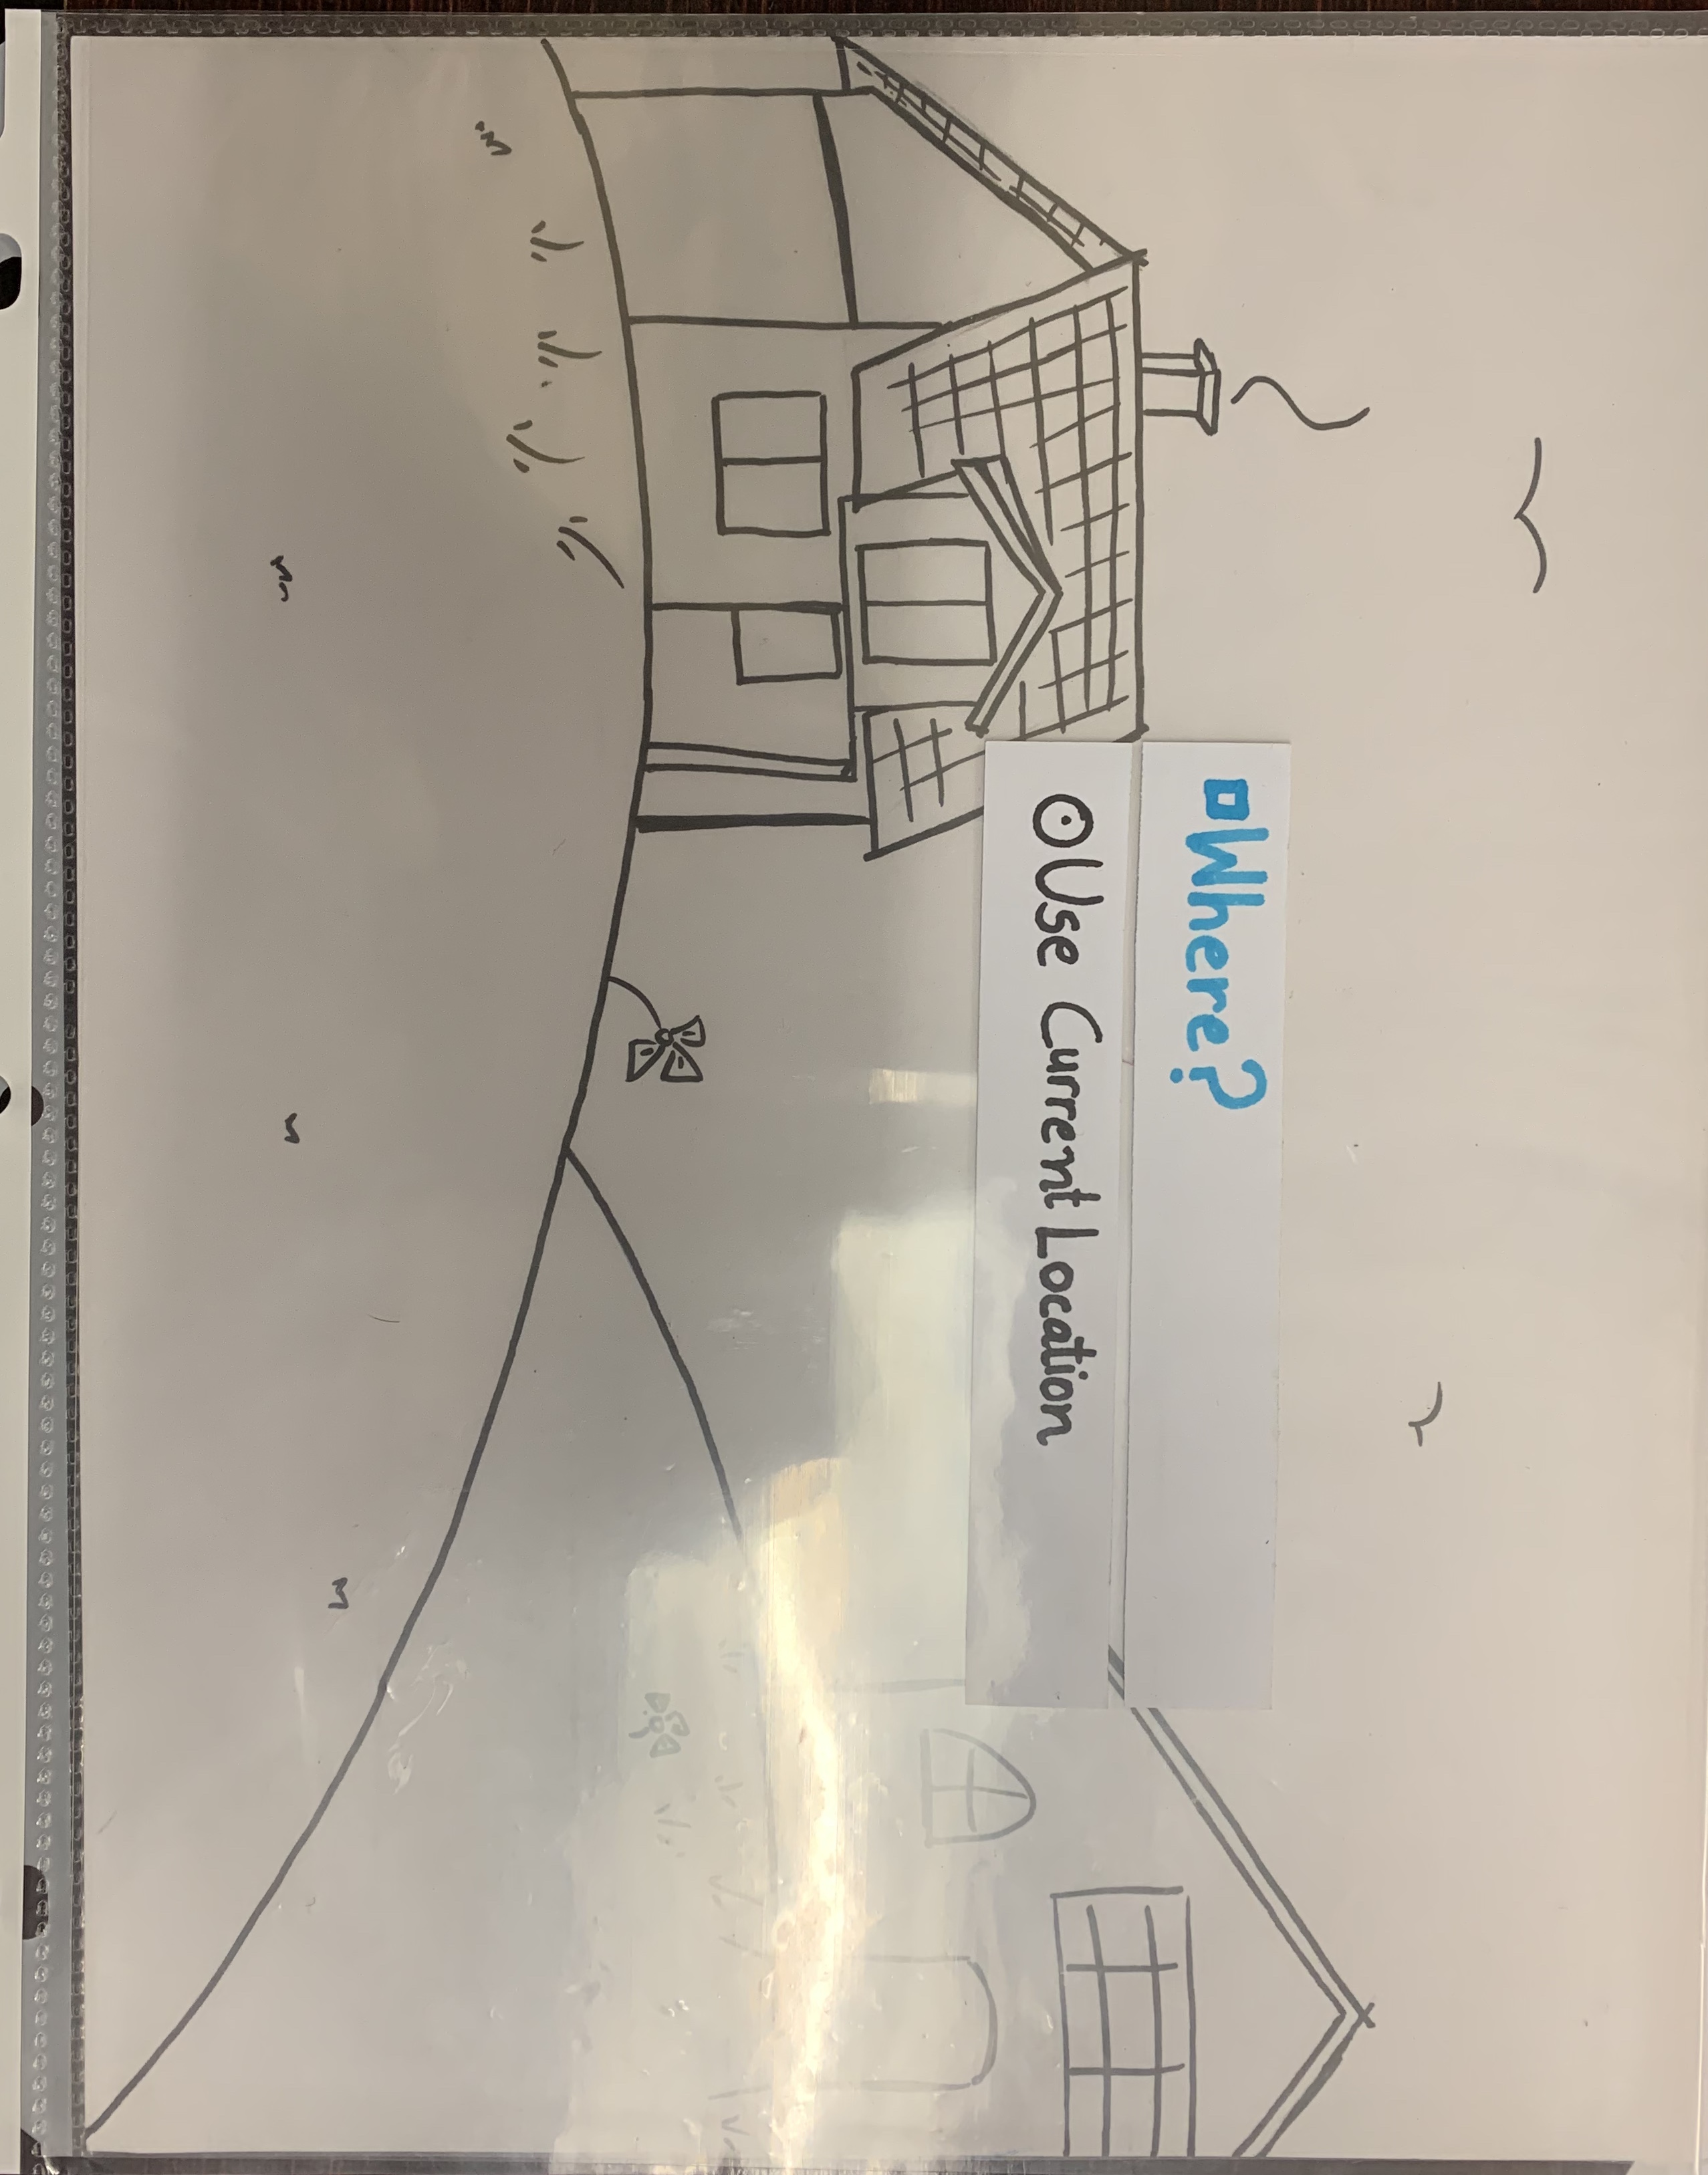 Where?
Use Current Location